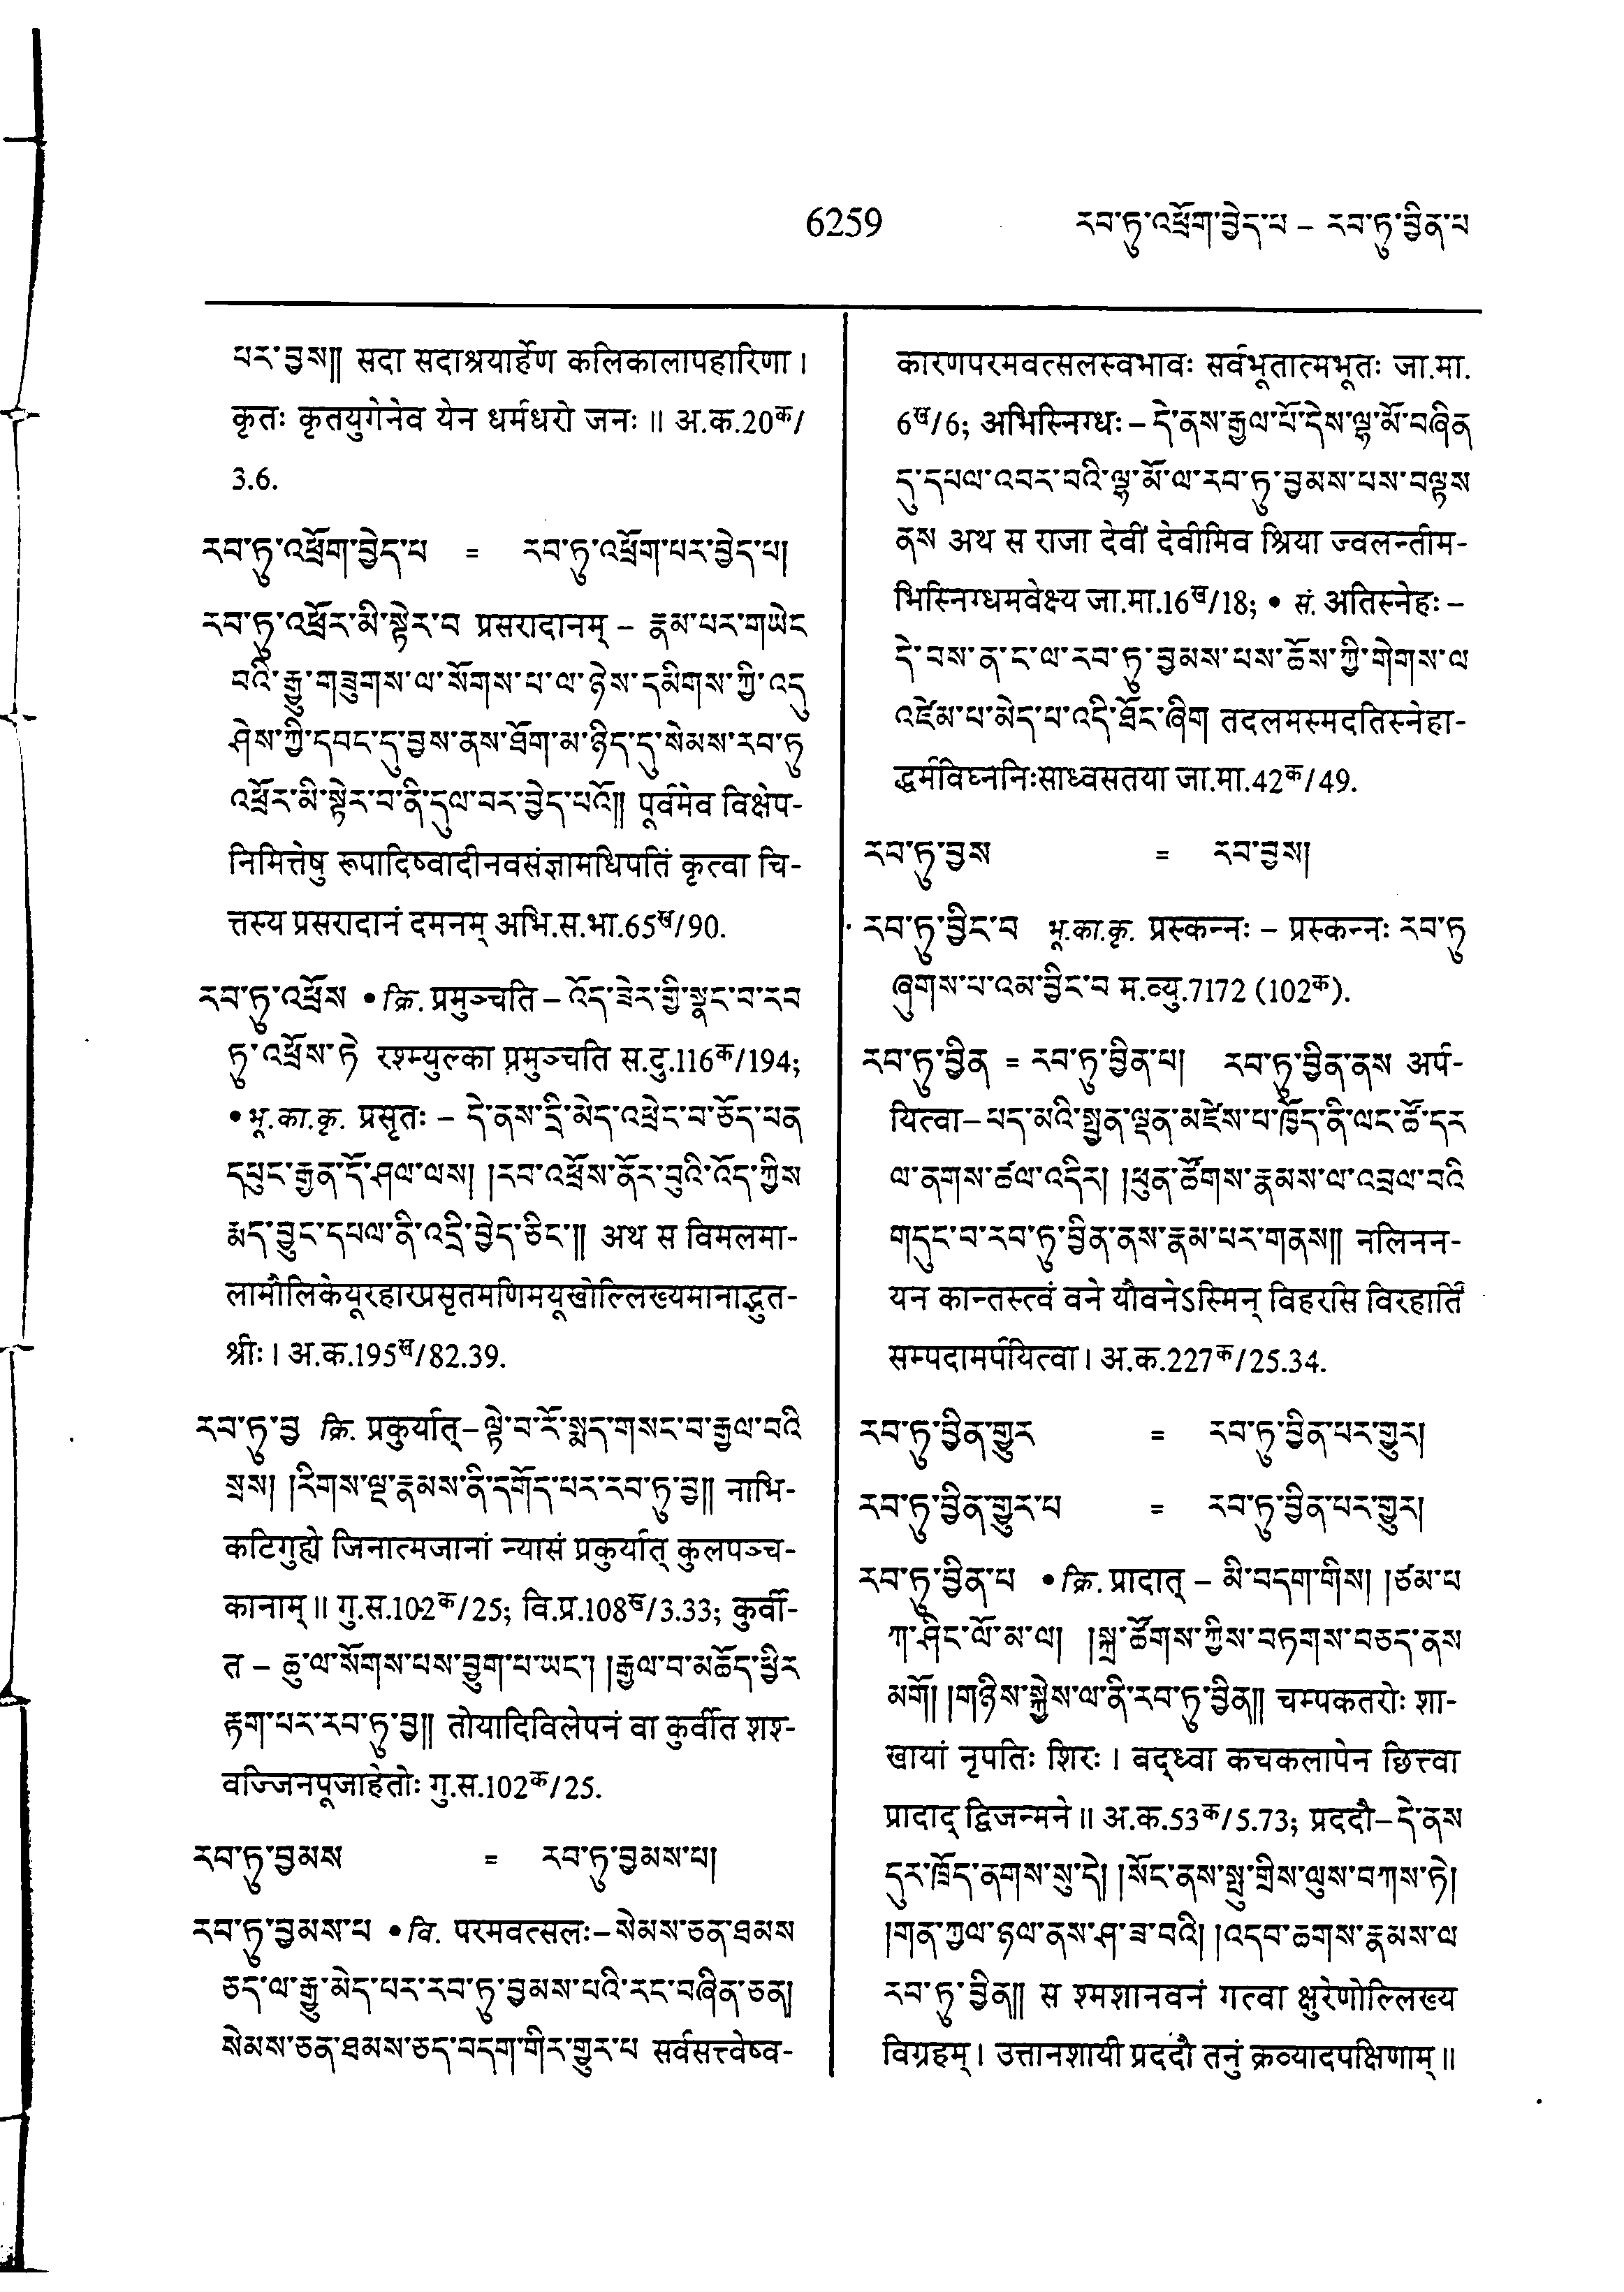 6259
རབ་ཏུ་འཕྲོག་བྱེད་པ – རབ་ཏུ་བྱིན་པ
པར་བྱས༎ सदा सदाश्रयार्हेण कलिकालापहारिणा ।
कृतः कृतयुगेनेव येन धर्मधरो जनः ॥ अ.क.20क/
3.6.
རབ་ཏུ་འཕྲོག་བྱེད་པ = རབ་ཏུ་འཕྲོག་པར་བྱེད་པ།
རབ་ཏུ་འཕྲོར་མི་སྟེར་བ प्रसरादानम् – རྣམ་པར་གཡེང
བའི་རྒྱུ་གཟུགས་ལ་སོགས་པ་ལ་ཉེས་དམིགས་ཀྱི་འདུ
ཤེས་ཀྱི་དབང་དུ་བྱས་ནས་ཐོག་མ་ཉིད་དུ་སེམས་རབ་ཏུ
འཕྲོར་མི་སྟེར་བ་ནི་དུལ་བར་བྱེད་པའོ༎ पूर्वमेव विक्षेप-
निमित्तेषु रूपादिष्वादीनवसंज्ञामधिपतिं कृत्वा चि-
त्तस्य प्रसरादानं दमनम् अभि.स.भा.65ख/90.
རབ་ཏུ་འཕྲོས • क्रि. प्रमुञ्चति – འོད་ཟེར་གྱི་སྣང་བ་རབ
ཏུ་འཕྲོས་ཏེ रश्म्युल्का प्रमुञ्चति स.दु.116क/194;
• भू.का.कृ. प्रसृतः – དེ་ནས་དྲི་མེད་འཕྲེང་བ་ཅོད་པན
དཔུང་རྒྱན་དོ་ཤལ་ལས། །རབ་འཕྲོས་ནོར་བུའི་འོད་ཀྱིས
རྨད་བྱུང་དཔལ་ནི་འདྲི་བྱེད་ཅིང་༎ अथ स विमलमा-
लामौलिकेयूरहारप्रसृतमणिमयूखोल्लिख्यमानाद्भुत-
श्रीः । अ.क.195ख/82.39.
རབ་ཏུ་བྱ क्रि. प्रकुर्यात् – ལྟེ་བ་རོ་སྨད་གསང་བ་རྒྱལ་བའི
སྲས། །རིགས་ལྔ་རྣམས་ནི་དགོད་པར་རབ་ཏུ་བྱ༎ नाभि-
कटिगुह्ये जिनात्मजानां न्यासं प्रकुर्यात् कुलपञ्च-
कानाम् ॥ गु.स.102क/25; वि.प्र.108ख/3.33; कुर्वी-
त – ཆུ་ལ་སོགས་པས་བྱུག་པ་ཡང་། །རྒྱལ་བ་མཆོད་ཕྱིར
རྟག་པར་རབ་ཏུ་བྱ༎ तोयादिविलेपनं वा कुर्वीत शश्-
वज्जिनपूजाहेतोः गु.स.102क/25.
རབ་ཏུ་བྱམས = རབ་ཏུ་བྱམས་པ།
རབ་ཏུ་བྱམས་པ • वि. परमवत्सलः – སེམས་ཅན་ཐམས
ཅད་ལ་རྒྱུ་མེད་པར་རབ་ཏུ་བྱམས་པའི་རང་བཞིན་ཅན།
སེམས་ཅན་ཐམས་ཅད་བདག་གིར་གྱུར་པ सर्वसत्त्वेष्व-
कारणपरमवत्सलस्वभावः सर्वभूतात्मभूतः जा.मा.
6ख/6; अभिस्निग्धः – དེ་ནས་རྒྱལ་པོ་དེས་ལྷ་མོ་བཞིན
དུ་དཔལ་འབར་བའི་ལྷ་མོ་ལ་རབ་ཏུ་བྱམས་པས་བལྟས
ནས अथ स राजा देवीं देवीमिव श्रिया ज्वलन्तीम-
भिस्निग्धमवेक्ष्य जा.मा.16ख/18; • सं. अतिस्नेहः –
དེ་བས་ན་ང་ལ་རབ་ཏུ་བྱམས་པས་ཆོས་ཀྱི་གེགས་ལ
འཛེམ་པ་མེད་པ་འདི་ཐོང་ཞིག तदलमस्मदतिस्नेहा-
द्धर्मविघ्ननिःसाध्वसतया जा.मा.42क/49.
རབ་ཏུ་བྱས = རབ་བྱས།
རབ་ཏུ་བྱིང་བ भू.का.कृ. प्रस्कन्नः – प्रस्कन्नः རབ་ཏུ
ཞུགས་པ་འམ་བྱིང་བ म.व्यु.7172 (102क).
རབ་ཏུ་བྱིན = རབ་ཏུ་བྱིན་པ། རབ་ཏུ་བྱིན་ནས अर्प-
यित्वा – པད་མའི་སྤྱན་ལྡན་མཛེས་པ་ཁྱོད་ནི་ལང་ཚོ་དར
ལ་ནགས་ཚལ་འདིར། །ཕུན་ཚོགས་རྣམས་ལ་འབྲལ་བའི
གདུང་བ་རབ་ཏུ་བྱིན་ནས་རྣམ་པར་གནས༎ नलिनन-
यन कान्तस्त्वं वने यौवनेऽस्मिन् विहरसि विरहार्तिं
सम्पदामर्पयित्वा । अ.क.227क/25.34.
རབ་ཏུ་བྱིན་གྱུར = རབ་ཏུ་བྱིན་པར་གྱུར།
རབ་ཏུ་བྱིན་གྱུར་པ = རབ་ཏུ་བྱིན་པར་གྱུར།
རབ་ཏུ་བྱིན་པ • क्रि. प्रादात् – མི་བདག་གིས། །ཙམ་པ
ཀ་ཤིང་ལོ་མ་ལ། །སྐྲ་ཚོགས་ཀྱིས་བཏགས་བཅད་ནས
མགོ། །གཉིས་སྐྱེས་ལ་ནི་རབ་ཏུ་བྱིན༎ चम्पकतरोः शा-
खायां नृपतिः शिरः । बद्ध्वा कचकलापेन छित्त्वा
प्रादाद् द्विजन्मने ॥ अ.क.53क/5.73; प्रददौ – དེ་ནས
དུར་ཁྲོད་ནགས་སུ་དེ། །སོང་ནས་སྤུ་གྲིས་ལུས་བཀས་ཏེ།
།གན་ཀྱལ་ཉལ་ནས་ཤ་ཟ་བའི། །འདབ་ཆགས་རྣམས་ལ
རབ་ཏུ་བྱིན༎ स श्मशानवनं गत्वा क्षुरेणोल्लिख्य
विग्रहम् । उत्तानशायी प्रददौ तनुं क्रव्यादपक्षिणाम् ॥